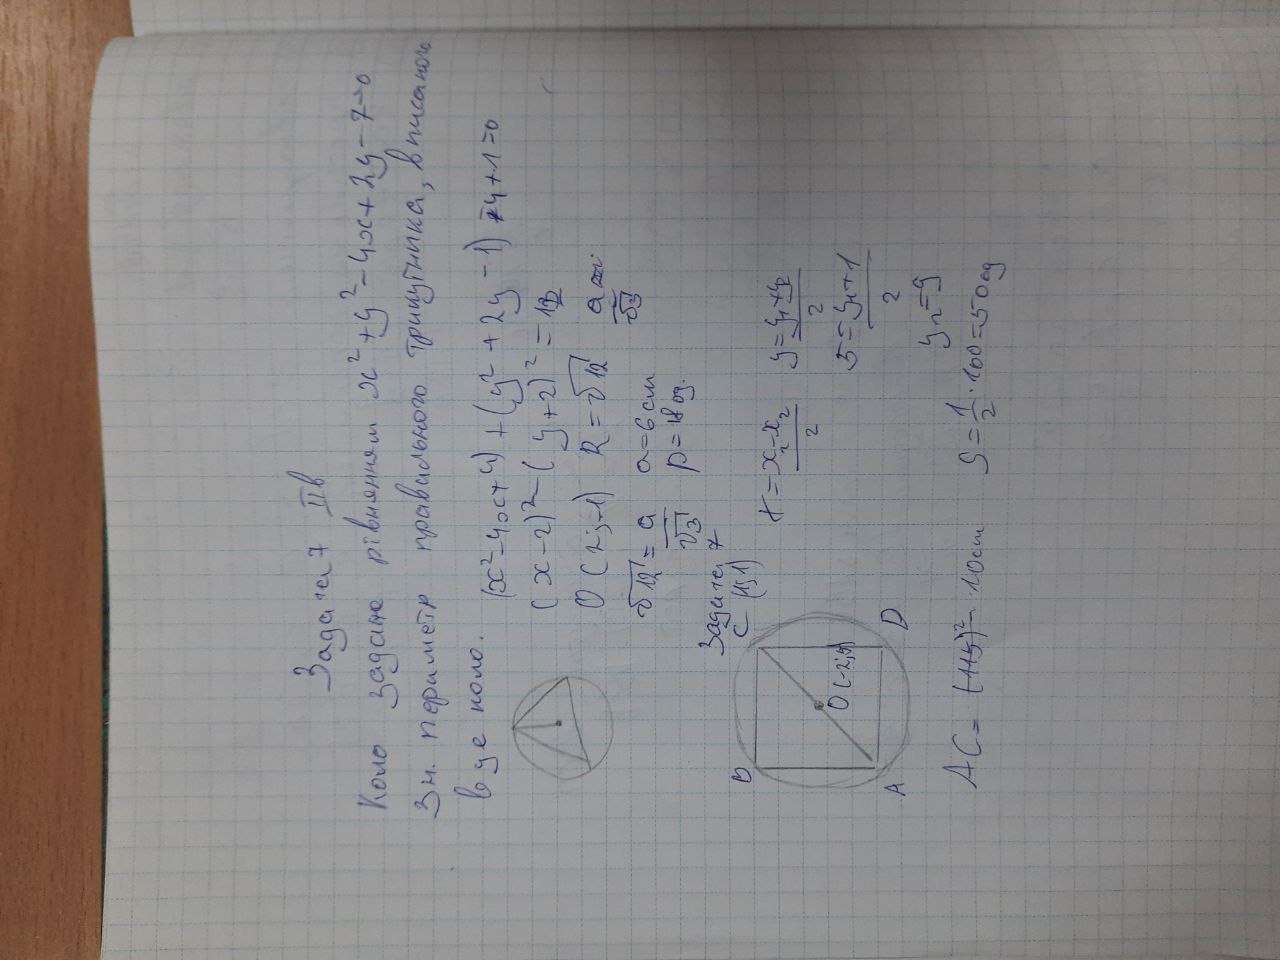 Задача 7 IIв
Коло задано рівнянням x² + y² - 4x + 2y - 7 = 0
Зн. периметр правильного трикутника, вписаного
в це коло.
(x² - 4x + 4) + (y² + 2y - 1) - 4 + 1 = 0
(x - 2)² - (y + 2)² = 12
O (2; -1) R = √12
√12 = a/√3 a = 6 cm
P = 18 од.
Задача 7
C (1; 1)
y = (y₁ + y₂)/2
5 = (y₁ + 1)/2
y₂ = 9
B
O (-2; 5)
A D
AC = 10 cm S = 1/2 · 100 = 50 од